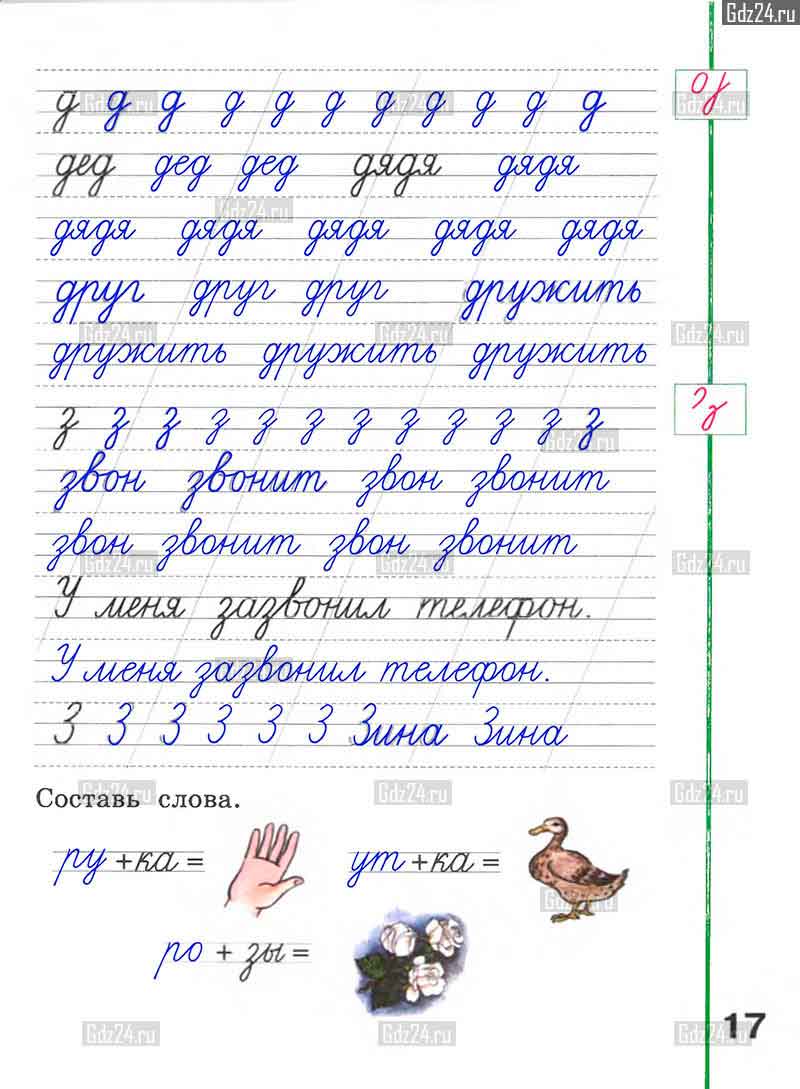 Gdz24.ru
д д д д д д д д д д д
дед дед дед дядя дядя
дядя дядя дядя дядя дядя
друг друг друг дружить
дружить дружить дружить
з з з з з з з з з з з з
звон звонит звон звонит
звон звонит звон звонит
У меня зазвонил телефон.
У меня зазвонил телефон.
З З З З З З Зина Зина
Составь слова.
ру + ка = ут + ка =
ро + зы =
17